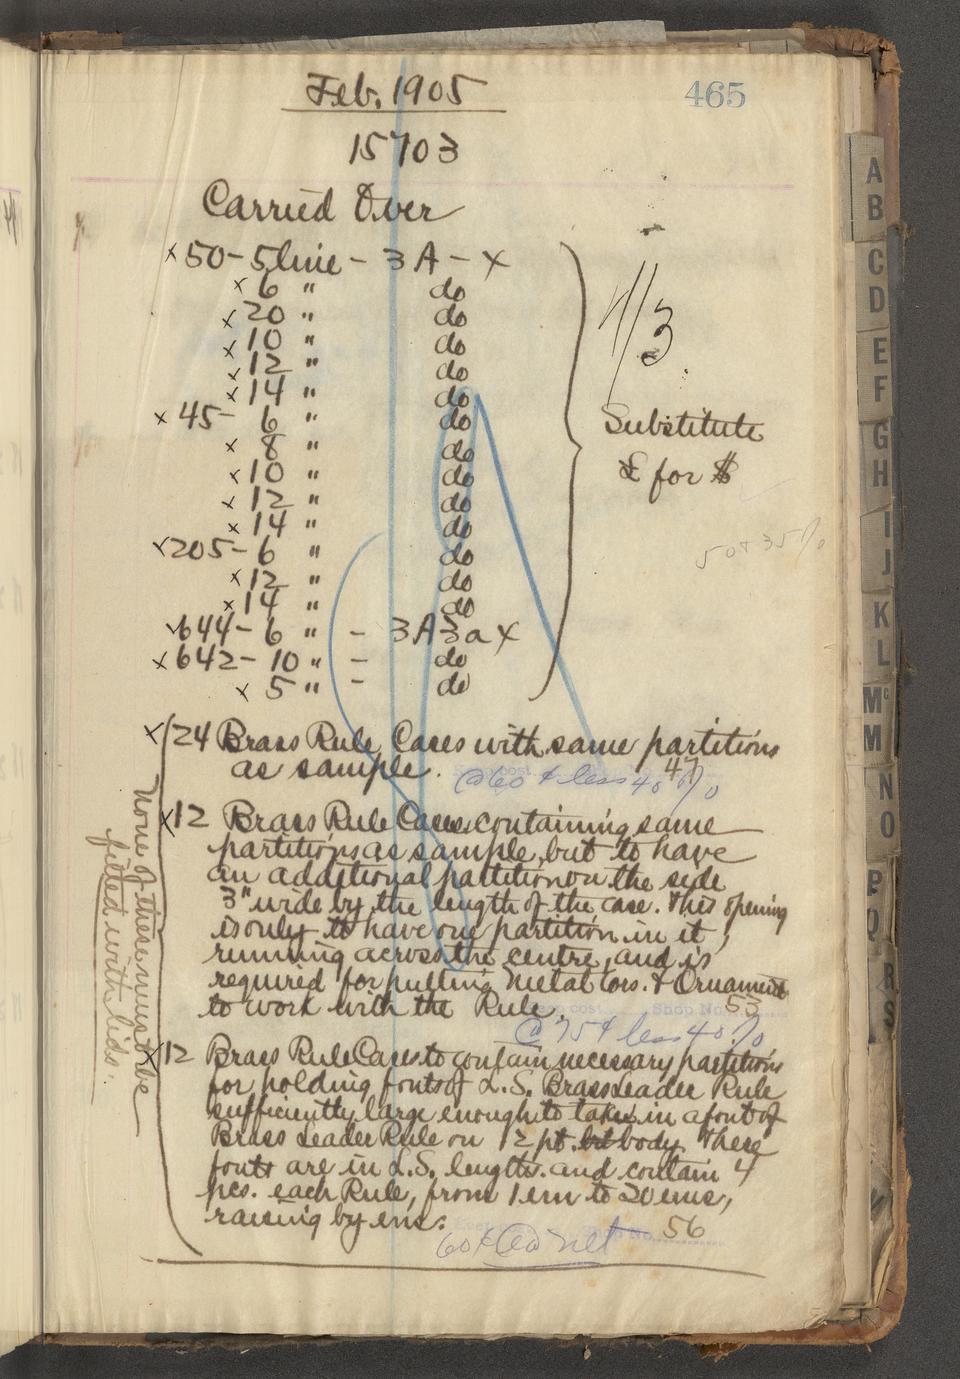 Feb. 1905
465
15703
Carried Over
x 50 - 5 line - 3 A - x
x 6 " do
x 20 " do
x 10 " do
x 12 " do
x 14 " do
x 45 - 6 " do
x 8 " do
x 10 " do
x 12 " do
x 14 " do
x 205 - 6 " do
x 12 " do
x 14 " do
x 644 - 6 " - 3A3a x
x 642 - 10 " - do
x 5 " - do
1/3
Substitute
£ for $
50 + 35%
x 24 Brass Rule Cases with same partitions
as sample. 47
@ 60 ¢ less 40 %
x 12 Brass Rule Cases containing same
partitions as sample, but to have
an additional partition on the side
3" wide by the length of the case. This opening
is only to have one partition in it,
running across the centre, and is
required for putting Metal Cors. & Ornaments
to work with the Rule.
Shop No. 53
@ 75 ¢ less 40 %
x 12 Brass Rule Cases to contain necessary partitions
for holding fonts of L.S. Brass Leader Rule
sufficiently large enough to take in a font of
Brass Leader Rule on 12 pt. bod body. These
fonts are in L.S. lengths. and contain 4
pcs. each Rule, from 1 em to 20 ems,
raising by ens.
No. 56
60 ¢ @ net
None of these must be
fitted with lids.
A
B
C
D
E
F
G
H
I
J
K
L
Mc
M
N
O
P
Q
R
S